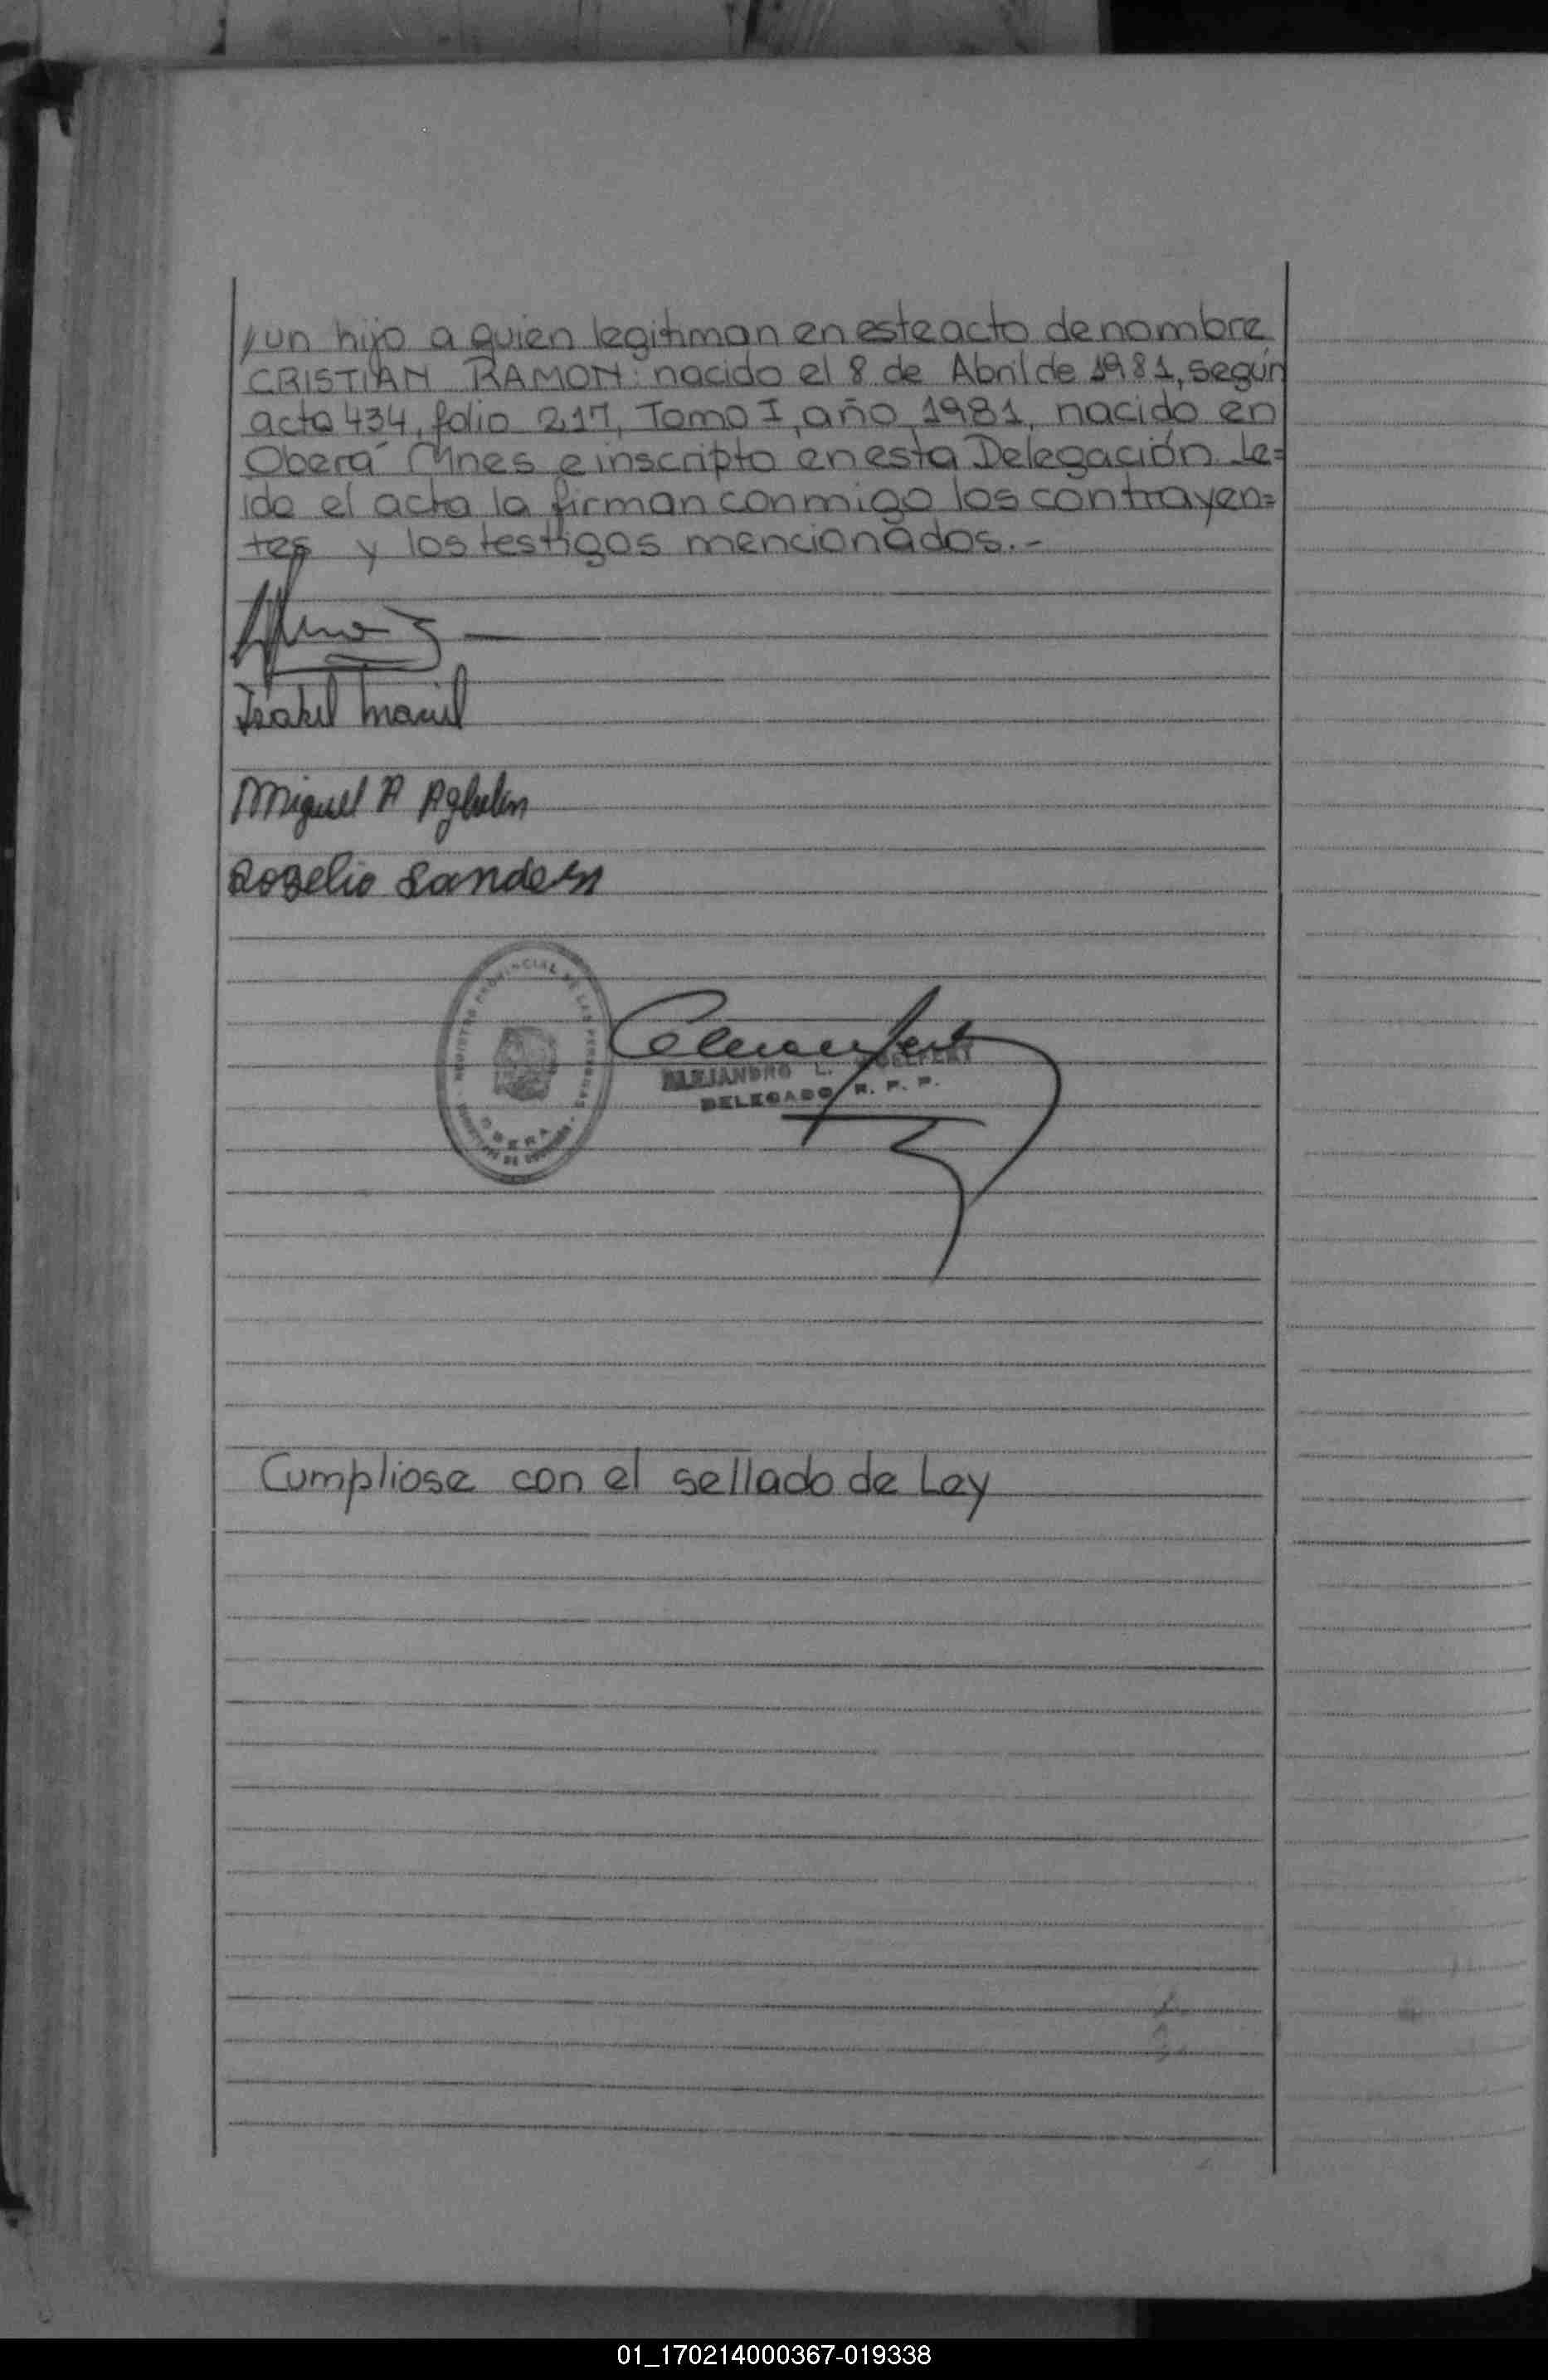 /un hijo a quien legitiman en este acto de nombre
CRISTIAN RAMON: nacido el 8 de Abril de 1981, según
acta 434, folio 217, Tomo I, año 1981, nacido en
Oberá Mnes e inscripto en esta Delegación Le=
ido el acta la firman conmigo los contrayen=
tes y los testigos mencionados.-
Isabel Maciel
Miguel A
Rogelio Sanders
PROVINCIAL DE LAS PERSONAS
OBERA
ALEJANDRO L.
DELEGADO R. P. P.
Cumpliose con el sellado de Ley
01_170214000367-019338